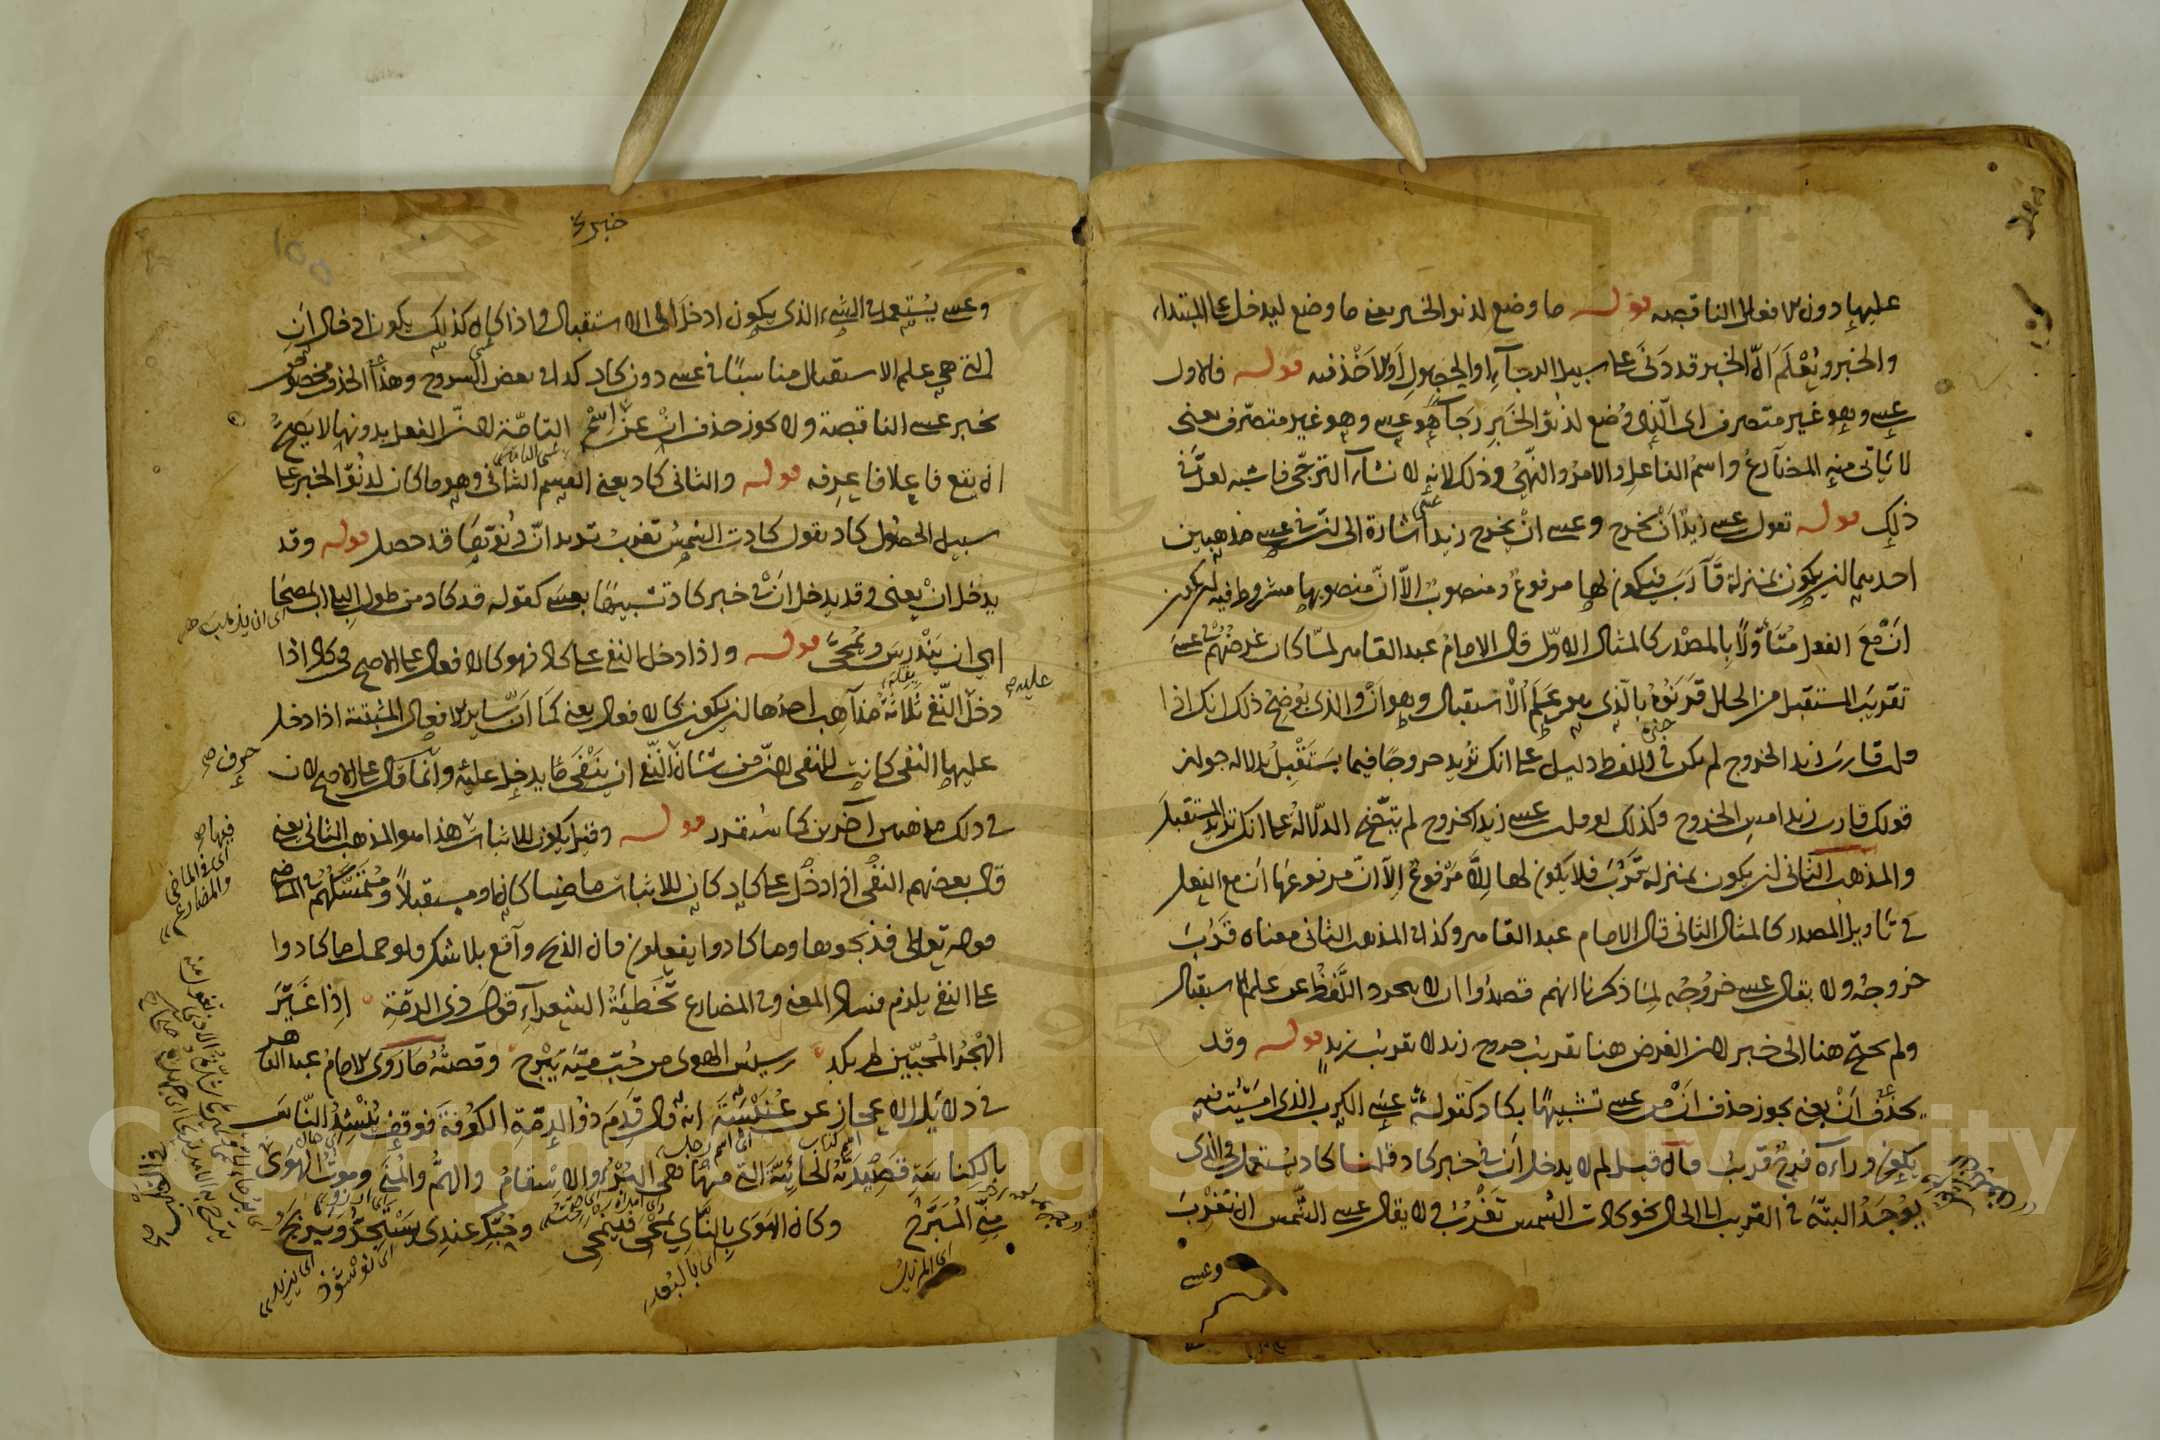 عليها دون الافعال الناقصه قوله ما وضع لدنو الخبر يعنى ما وضع ليدخل على المبتداء
والخبر ويُعْلَم انّ الخبر قد دَنَى على سبيل الرجآء او الحصول او الاخذ فيه قوله فالاول
عسى وهو غير متصرف اى الّذى وُضع لدنوّ الخبر رجآء هو عسى وهو غير متصرّف يعنى
لا يأتى منه المضارع واسم الفاعل والامر والنهى وذلك لانه لانشآء الترجّى فاشبه لعلّ فى
ذلك قوله تقول عسى زيدٌ اَنْ يخرج وعسى انْ يخرج زيد اشارة الى انّ فى عسى مذهبين
احديهما ان يكون بمنزلة قارَبَ فيكون لها مرفوعٌ ومنصوبٌ الاّ انّ منصوبها مشروط فيه ان يكون
اَنْ مَعَ الفعل مُتأوّلاً بالمصْدر كالمثال الاوّل قال الامام عبد القاهر لمّا كان غرضُهُمْ فى عسى
تقريبَ المستقبل من الحال قَرَنُوهُ بالّذى هو عَلَم الاستقبال وهو اَنْ والذى يُوضِحُ ذلك انك اذا
قلت قارب زيد الخروج لم يكن فى اللفظ دليل على انك تريد خروجًا فيما يستقبل بدلالة جواز
قولك قارب زيد امس الخروج وكذلك لو قلت عسى زيد الخروج لم يتّضح الدلالة على انك تريد المستقبل
والمذهب الثانى ان يكون بمنزلة قَرُبَ فلا يكون لها اِلاَّ مرفوعٌ اِلاّ انّ مرفوعها اَن مع الفعل
فى تاويل المصدر كالمثال الثانى قال الامام عبد القاهر وكذلك المذهب الثانى معناه قَرُبَ
خروجُه ولا يقال عسى خروجُه لِمَا ذكرنا انهم قصدُوا ان لا يجرد اللّفظُ عن علم الاستقبال
ولم يحتج هنا الى خبر لان الغرض هنا تقريب خروج زيد لا تقريب زيدٍ قوله وقد
يحذف اَنْ يعنى يجوز حذف انْ من عسى تشبيهًا بكاد كقوله عَسَى الكربُ الذى امسَيْتُ فيه
يكون ورآءَه فرجٌ قريبُ قال قيل لم لا يدخل اَن فى خبر كاد قلنا كاد يستعمل فى الذى
يُوجَدُ البتّةَ فى القريب الى الحال نحو كادت الشمس تَغْرُبُ ولا يقال عسى الشّمس ان تَغْرُبَ
وعسى
خبر
١٥٥
وعسى يستعمل فى الشىء الذى يكون ادخَلَ فى الاستقبال واذا كان كذلك يكون ادخال اَن
التى هى علم الاستقبال مناسبًا فى عسى دون كاد كذا فى بعض الشروح وهذا الحذف مخصوص
بخبر عسى الناقصة ولا يجوز حذف انْ عن اسْم التامّة لانّ الفعل بدونها لا يصحّ
ان يقع فاعلا فاعرفه قوله والثانى كاد يعنى القسم الثانى وهو ما كان لدنُوّ الخبر على
سبيل الحصُول كاد تقول كادت الشمسُ تغرب تريد انّ دُنُوّها قد حصل قوله وقد
يدخل انْ يعنى وقد يدخل اَنْ فى خبر كاد تشبيهًا بعسى كقوله قد كاد من طول البلى ان يمصحَا
اى ان يَنْدَرِسَ ويُمْحَى قوله واذا دخل النفى على كاد فهو كالافعال على الاصح وفى كاد اذا
دخل النّفى ثلاثةُ مذآهب احدُها ان يكون كالافعال يعنى كما انّ سآير الافعال المثبتة اذا دخل
عليها النفى كانت للنفى لانّ من شان النّفى ان ينفى ما يدخل عليه وانّما قال على الاصح لان
فى ذلك مذهبين آخرين كما سنقرر قوله وقيل يكون للاثبات هذا هو المذهب الثانى يعنى
قال بعضهم النفى اذا دخل على كاد كان للاثبات ماضيا كان او مستقبلاً ومُتمسَّكُهُم فى الماضى
قوله تعالى فذبحوها وما كادوا يفعلون فان الذبح وآقع بلا شك فلو حمل ما كادوا
على النفى يلزم فساد المعنى وفى المضارع تخطِئَةُ الشعرآء قول ذى الرمّة اِذا غَيَّرَ
الهَجْرُ المُحِبّين لم يكد رسيسُ الهوى من حُبّ ميّة يَبْرحُ وقصتُه ما رَوَى الامام عبد القاهر
فى دلائل الاعجاز عن عنبسة انه قال قَدِمَ ذوُ الرمّةِ الكوفةَ فوقف يُنْشِدُ النّاسَ
بالكناسة قَصِيْدَتَهُ الحائيّةَ التى منها هى البُرْءُ والاسقامُ والهمُّ والمُنَى وموتُ الهَوَى
منّى المُبَرِّحُ وكان الهَوَى بِالنَّأي يُمحَى فيَمَّحِى وحُبُّكِ عندى يَسْتَجِدُّ ويربحُ
عليه
حرف
فيهما
اى فى الماضى والمضارع
اى بالبعد
اى يزيد